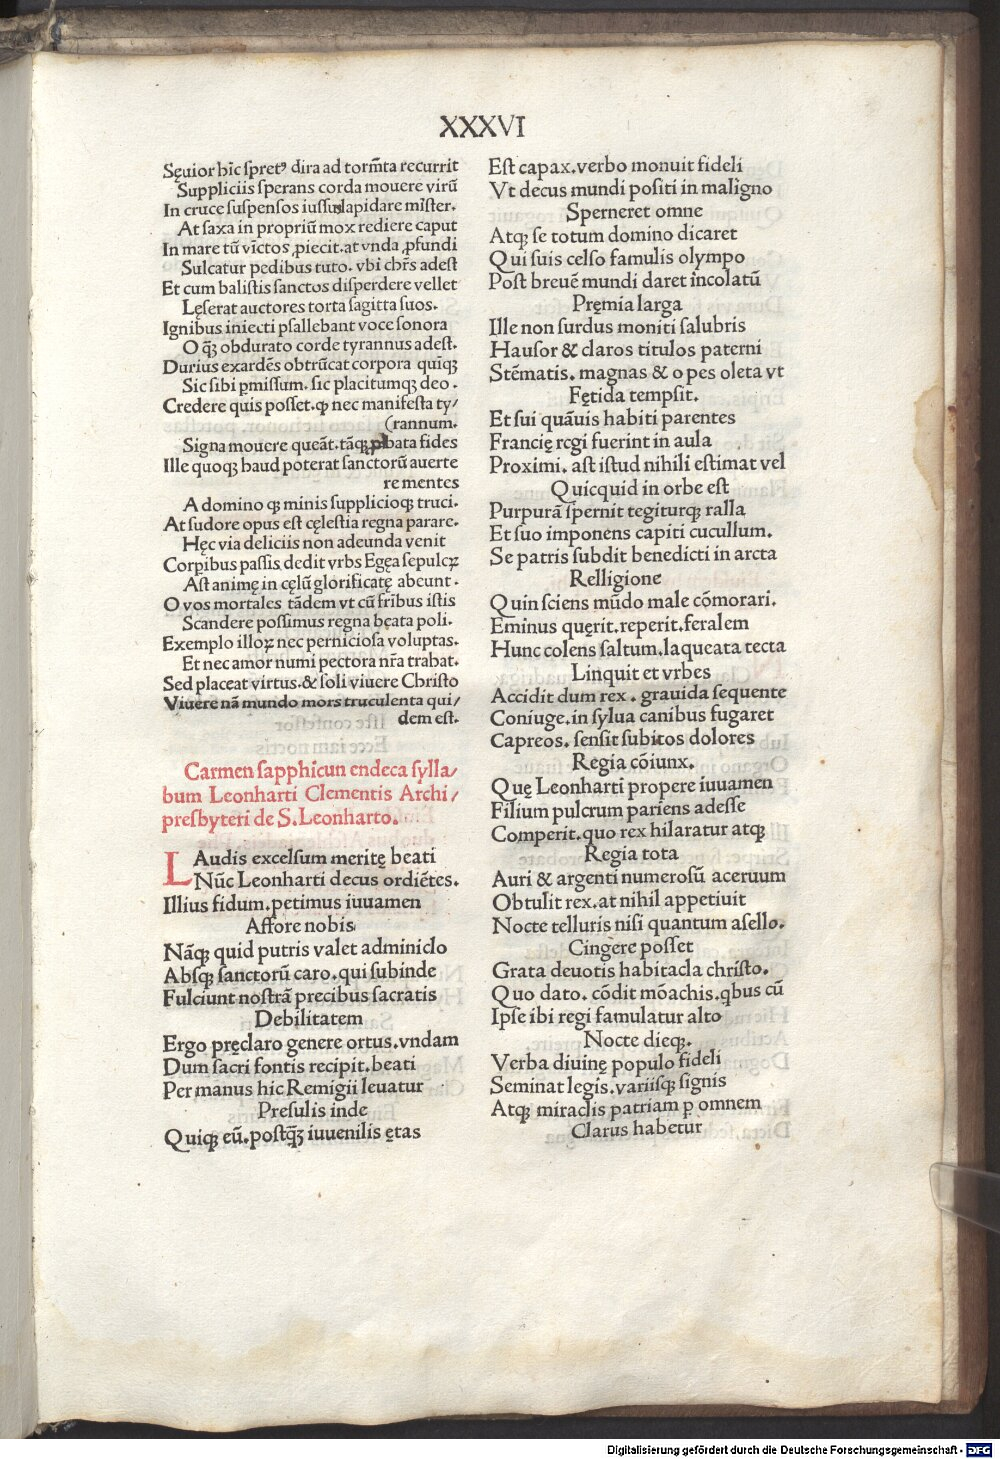 XXXVI
Sęuior hic spretꝰ dira ad torm̄ta recurrit
Suppliciis sperans corda mouere virū
In cruce suspensos iussu lapidare mister.
At saxa in propriū mox rediere caput
In mare tū victos ꝓiecit. at vnda ꝓfundi
Sulcatur pedibus tuto. vbi chr̄s adest
Et cum balistis sanctos disperdere vellet
Lęserat auctores torta sagitta suos.
Ignibus iniecti psallebant voce sonora
O qꝫ̄ obdurato corde tyrannus adest.
Durius exardēs obtrūcat corpora quīqꝫ
Sic sibi ꝑmissum. sic placitumqꝫ deo.
Credere quis posset. ꝙ nec manifesta ty/
(rannum.
Signa mouere queāt. tāqꝫ ꝓbata fides
Ille quoqꝫ haud poterat sanctorū auerte
re mentes
A domino qꝫ minis supplicioqꝫ truci.
At sudore opus est cęlestia regna parare.
Hęc via deliciis non adeunda venit
Corpibus passis dedit vrbs Egęa sepulcꝝ
Ast animę in cęlū glorificatę abeunt.
O vos mortales tādem vt cū fr̄ibus istis
Scandere possimus regna beata poli.
Exemplo illoꝝ nec perniciosa voluptas.
Et nec amor numi pectora nr̄a trahat.
Sed placeat virtus. & soli viuere Christo
Viuere nā mundo mors truculenta qui/
dem est.
Carmen sapphicun endeca sylla/
bum Leonharti Clementis Archi/
presbyteri de S. Leonharto.
LAudis excelsum meritę beati
Nūc Leonharti decus ordiētes.
Illius fidum. petimus iuuamen
Affore nobis
Nāqꝫ quid putris valet adminiclo
Absqꝫ sanctorū caro. qui subinde
Fulciunt nostrā precibus sacratis
Debilitatem
Ergo pręclaro genere ortus. vndam
Dum sacri fontis recipit. beati
Per manus hic Remigii leuatur
Presulis inde
Quiqꝫ eū. postqꝫ̄ iuuenilis ętas
Est capax. verbo monuit fideli
Vt decus mundi positi in maligno
Sperneret omne
Atqꝫ se totum domino dicaret
Qui suis celso famulis olympo
Post breuē mundi daret incolatū
Pręmia larga
Ille non surdus moniti salubris
Hausor & claros titulos paterni
Stēmatis. magnas & opes oleta vt
Fętida tempsit.
Et sui quāuis habiti parentes
Francię regi fuerint in aula
Proximi. ast istud nihili estimat vel
Quicquid in orbe est
Purpurā spernit tegiturqꝫ ralla
Et suo imponens capiti cucullum.
Se patris subdit benedicti in arcta
Relligione
Quin sciens mūdo male cōmorari.
Eminus quęrit. reperit. feralem
Hunc colens saltum. laqueata tecta
Linquit et vrbes
Accidit dum rex. grauida sequente
Coniuge. in sylua canibus fugaret
Capreos. sensit subitos dolores
Regia cōiunx.
Quę Leonharti propere iuuamen
Filium pulcrum pariens adesse
Comperit. quo rex hilaratur atqꝫ
Regia tota
Auri & argenti numerosū aceruum
Obtulit rex. at nihil appetiuit
Nocte telluris nisi quantum asello.
Cingere posset
Grata deuotis habitacla christo.
Quo dato. cōdit mōachis. qbus cū
Ipse ibi regi famulatur alto
Nocte dieqꝫ.
Verba diuinę populo fideli
Seminat legis. variisqꝫ signis
Atqꝫ miraclis patriam ꝑ omnem
Clarus habetur
Digitalisierung gefördert durch die Deutsche Forschungsgemeinschaft - DFG